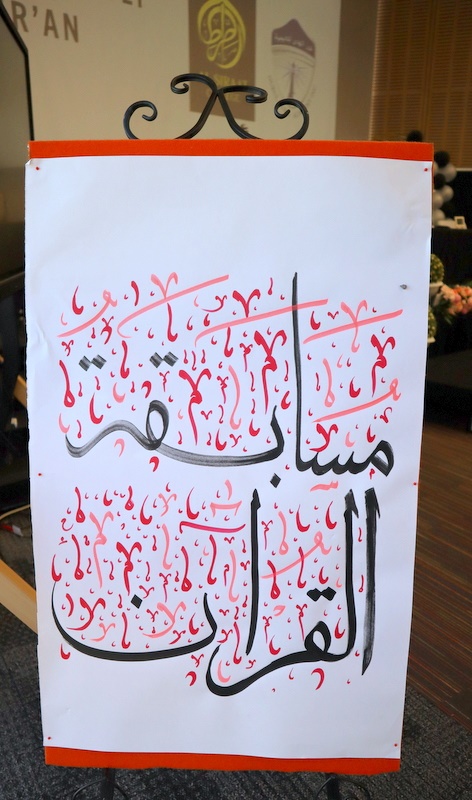 R'AN
مسابقة
القرآن